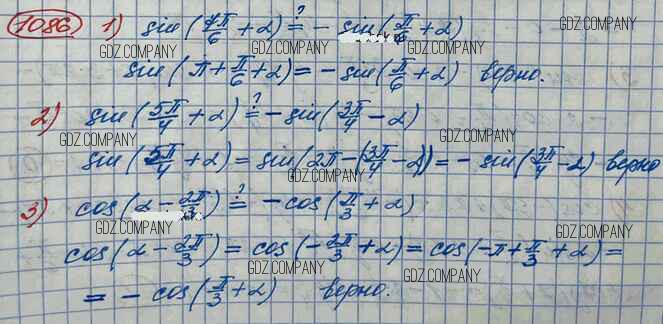 1086 1) sin(7π/6 + α) ?= - sin(π/6 + α)
GDZ.COMPANY GDZ.COMPANY GDZ.COMPANY
sin(π + π/6 + α) = - sin(π/6 + α) верно.
2) sin(5π/4 + α) ?= - sin(3π/4 - α)
GDZ.COMPANY GDZ.COMPANY
sin(5π/4 + α) = sin(2π - (3π/4 - α)) = - sin(3π/4 - α) верно
GDZ.COMPANY
3) cos(α - 2π/3) ?= - cos(π/3 + α)
GDZ.COMPANY GDZ.COMPANY GDZ.COMPANY
cos(α - 2π/3) = cos(-2π/3 + α) = cos(-π + π/3 + α) =
GDZ.COMPANY GDZ.COMPANY
= - cos(π/3 + α) верно.